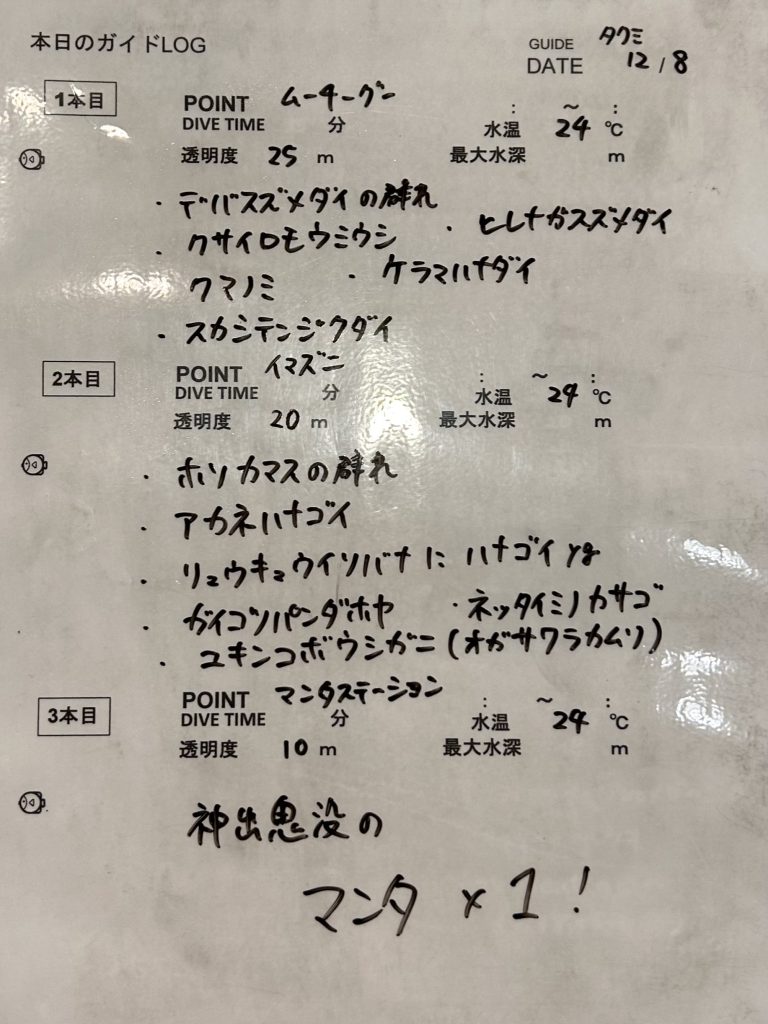 本日のガイドLOG
GUIDE タクミ
DATE 12 / 8
1本目 POINT ムーチーグン : ～ :
DIVE TIME 分 水温 24 ℃
透明度 25 m 最大水深 m
・デバスズメダイの群れ
・クサイロモウミウシ ・ヒレナガスズメダイ
クマノミ ・ケラマハナダイ
・スカシテンジクダイ
2本目 POINT イマズニ : ～ :
DIVE TIME 分 水温 24 ℃
透明度 20 m 最大水深 m
・ホソカマスの群れ
・アカネハナゴイ
・リュウキュウイソバナに ハナゴイyg
・ガイコツパンダホヤ ・ネッタイミノカサゴ
・ユキンコボウシガニ(オガサワラカムリ)
3本目 POINT マンタステーション : ～ :
DIVE TIME 分 水温 24 ℃
透明度 10 m 最大水深 m
神出鬼没の
マンタ ×1!